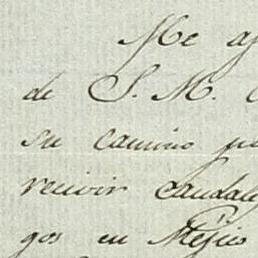 Me a
de S. M.
su camino p
recivir caudale
gos en Mejico